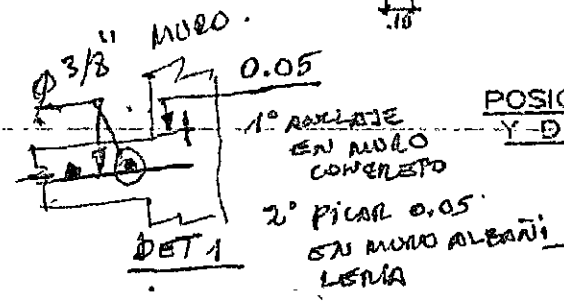 .10
Ø 3/8" MURO.
0.05
POSIC
Y D
1° ANCLAJE
EN MURO
CONCRETO
2° PICAR 0.05
EN MURO ALBAÑI
LERIA
DET 1